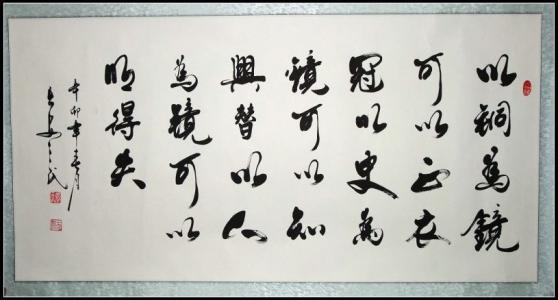 以銅為鏡
可以正衣
冠以史為
鏡可以知
興替以人
為鏡可以
明得失
辛卯年春月